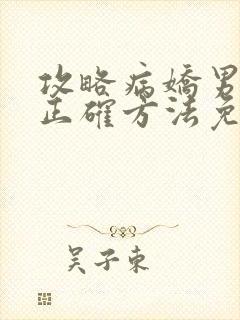 攻略病嬌男
正確方法免
吴子東